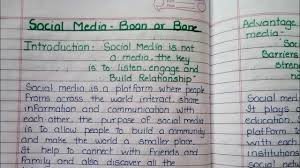 Social Media - Boon or Bane
Introduction: Social Media is not
a media, the key
is to listen, engage and
Build Relationship"
Social media is a platform where people
from across the world interact, share
information and communication with
each other. the purpose of social media
is to allow people to build a community
and make the world a smaller place.
It help to connect with friends and
Family and also discover all the
Advantage
media:-
Social
Barriers
strong
Social
plays
education
platform
With
each
and